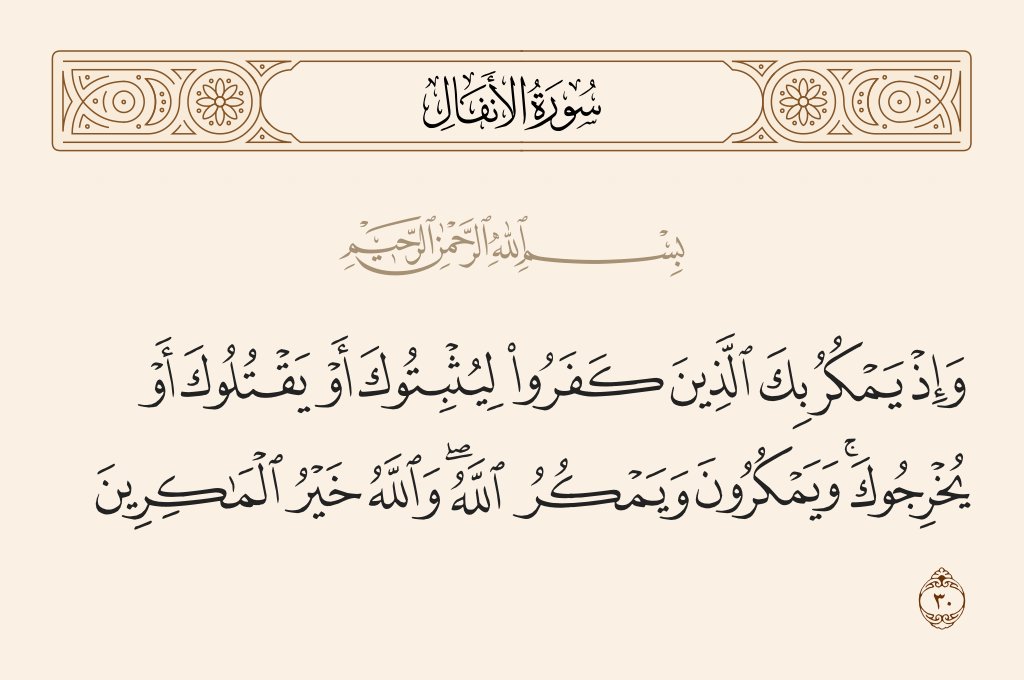 سُورَةُ الأَنفَالِ
بِسْمِ ٱللَّهِ ٱلرَّحْمَٰنِ ٱلرَّحِيمِ
وَإِذْ يَمْكُرُ بِكَ ٱلَّذِينَ كَفَرُوا۟ لِيُثْبِتُوكَ أَوْ يَقْتُلُوكَ أَوْ
يُخْرِجُوكَ ۚ وَيَمْكُرُونَ وَيَمْكُرُ ٱللَّهُ ۖ وَٱللَّهُ خَيْرُ ٱلْمَـٰكِرِينَ
٣٠